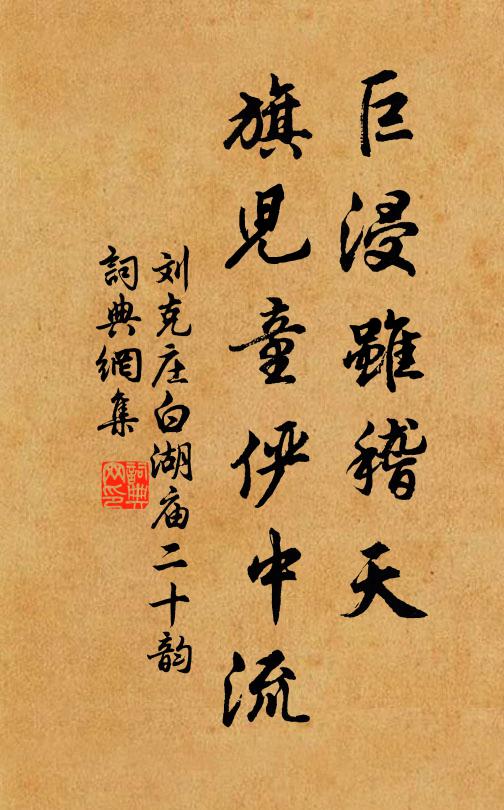 巨浸雖稽天
旗兒童俨中流
刘克庄白湖庙二十韵
詞典網集
詞典
网印